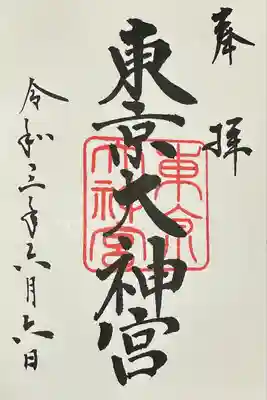 奉拝
東京大神宮
令和三年六月六日
東京大神宮